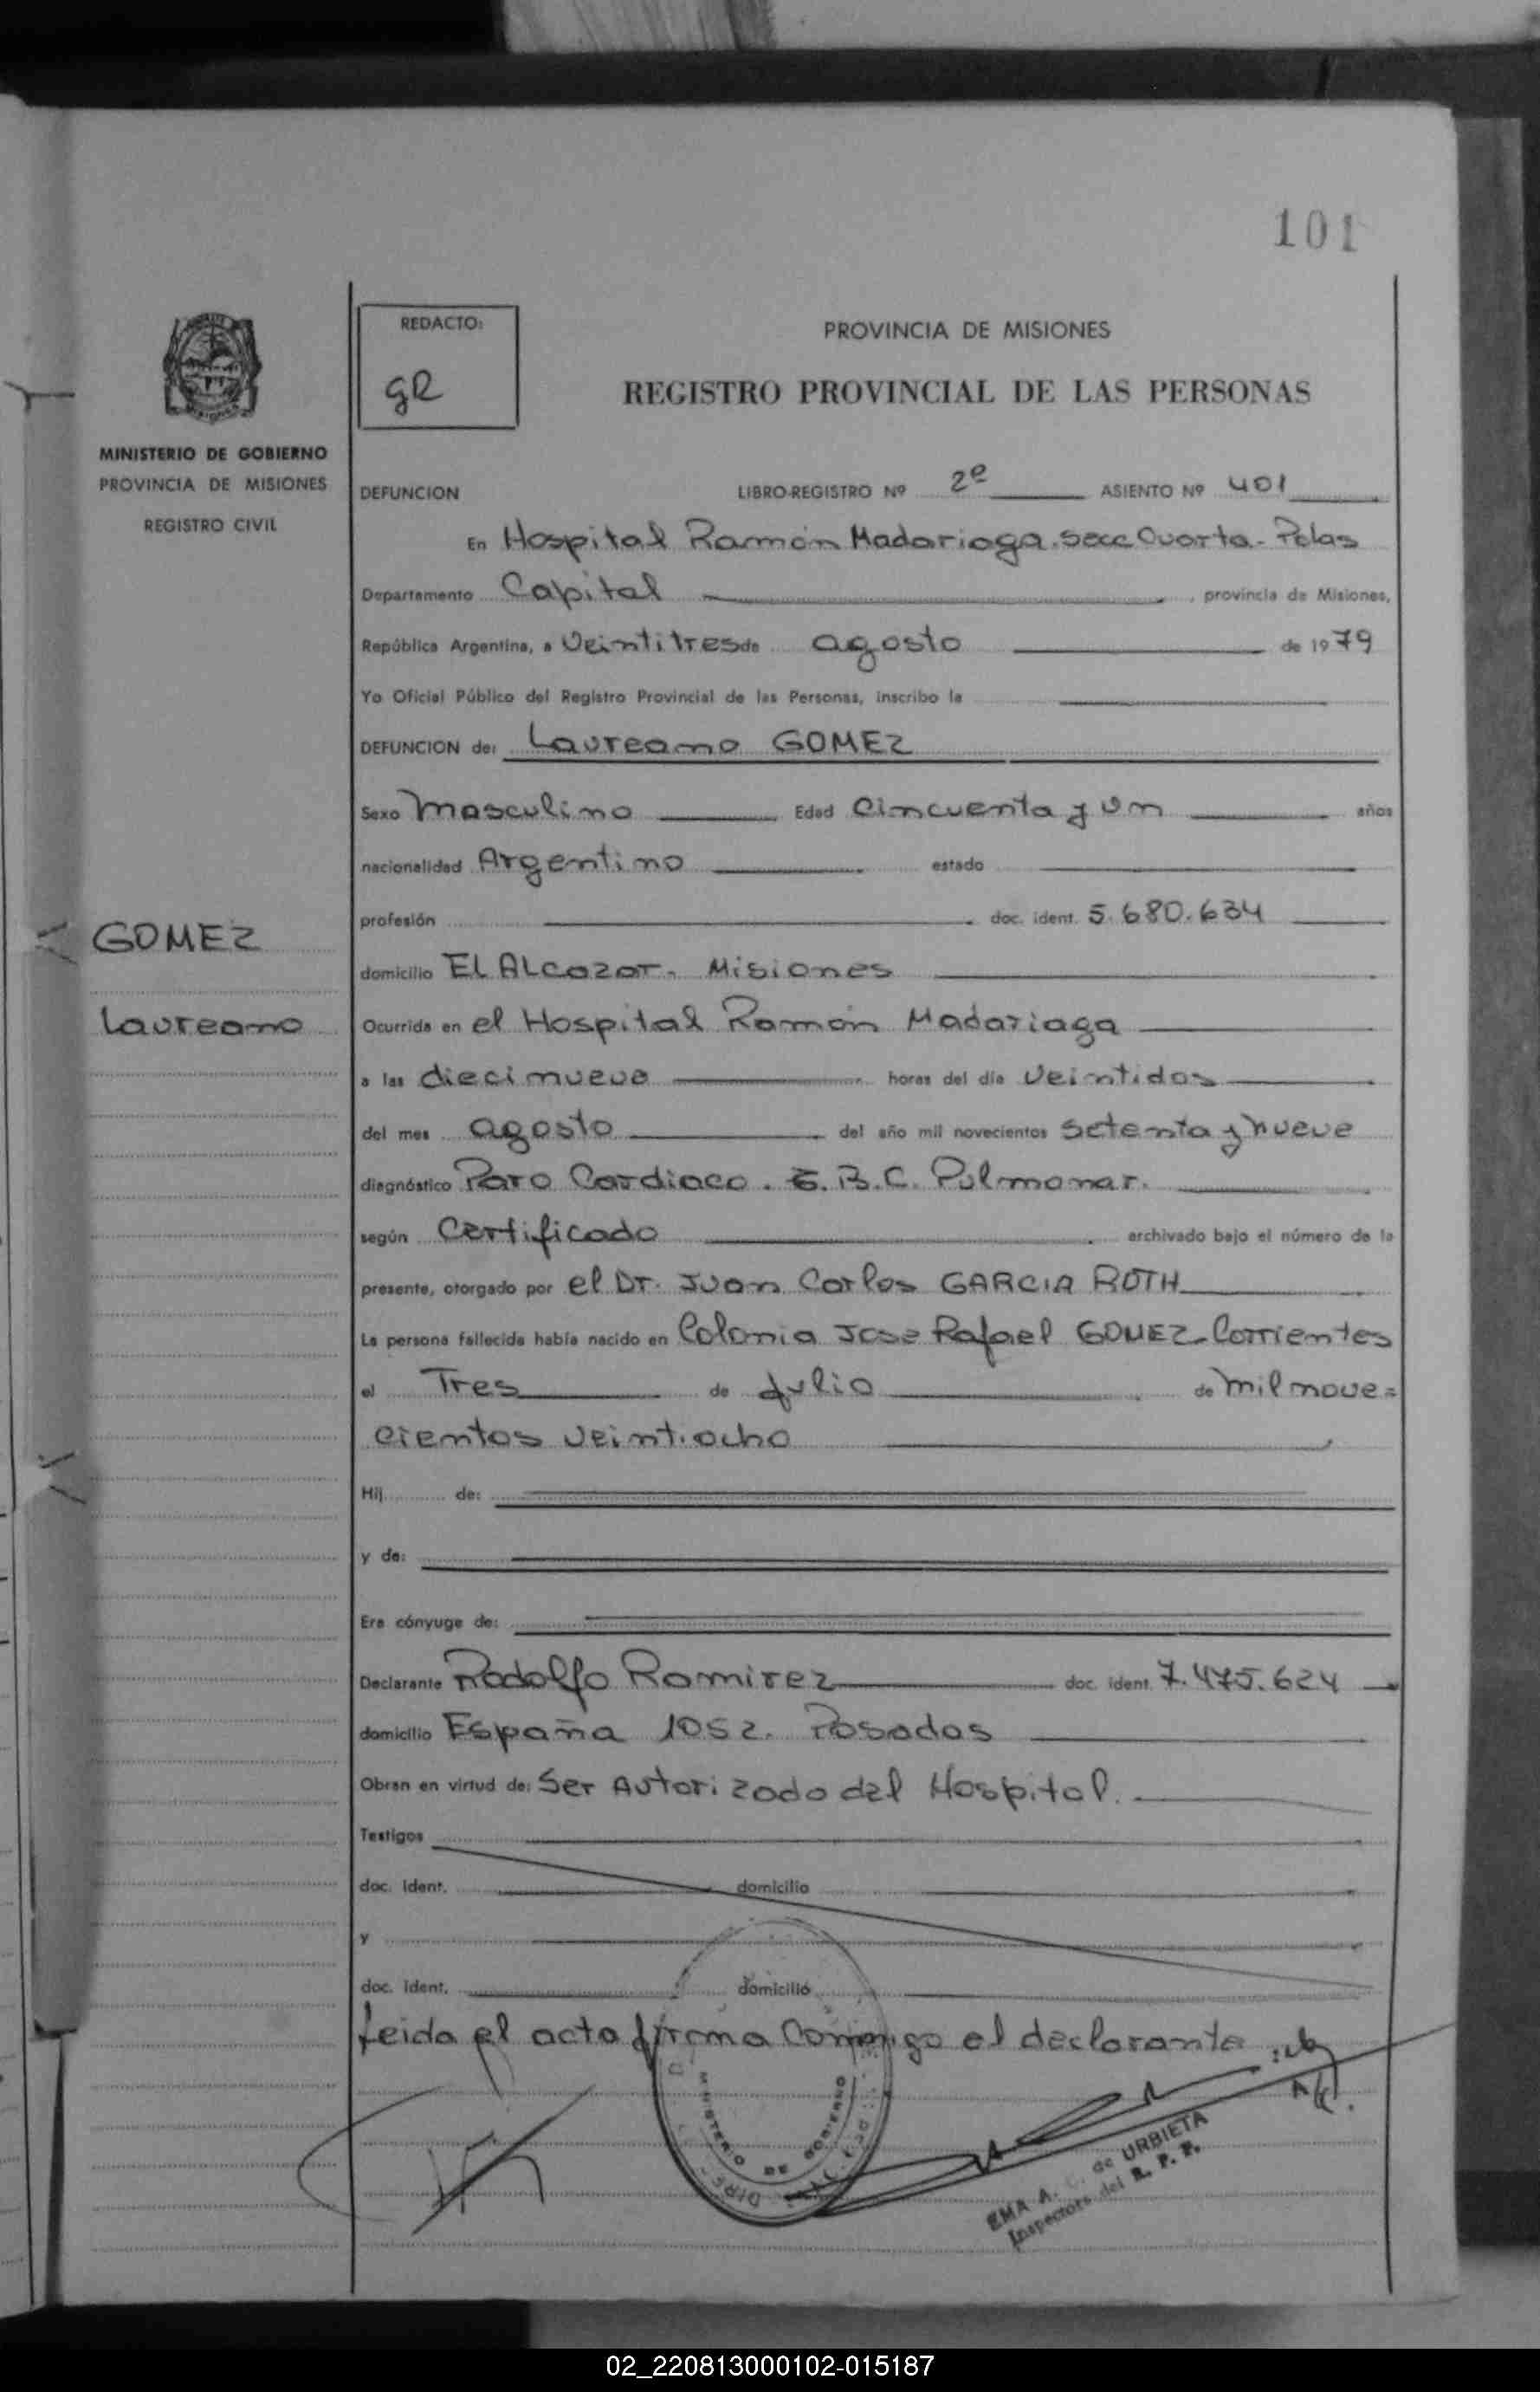 101
REDACTO:
gR
PROVINCIA DE MISIONES
REGISTRO PROVINCIAL DE LAS PERSONAS
MINISTERIO DE GOBIERNO
PROVINCIA DE MISIONES
REGISTRO CIVIL
DEFUNCION LIBRO-REGISTRO Nº 2º ASIENTO Nº 401
En Hospital Ramón Madariaga. Secc Cuarta - Pdas
Departamento Capital , provincia de Misiones,
República Argentina, a Veintitres de agosto de 1979
Yo Oficial Público del Registro Provincial de las Personas, inscribo la
DEFUNCION de: Laureano GOMEZ
Sexo Masculino Edad Cincuenta y un años
nacionalidad Argentino estado
profesión doc. ident. 5.680.634
GOMEZ
domicilio El Alcazar - Misiones
Laureano
Ocurrida en el Hospital Ramón Madariaga
a las diecinueve horas del día Veintidos
del mes agosto del año mil novecientos setenta y nueve
diagnóstico Paro Cardiaco. T.B.C. Pulmonar.
según Certificado archivado bajo el número de la
presente, otorgado por el Dr. Juan Carlos GARCIA ROTH
La persona fallecida había nacido en Colonia Jose Rafael GOMEZ - Corrientes
el Tres de Julio de mil nove=
cientos veintiocho
Hij de:
y de:
Era cónyuge de:
Declarante Rodolfo Ramirez doc. ident. 7.475.624
domicilio España 1052. Posadas
Obran en virtud de: Ser Autorizado del Hospital.
Testigos
doc. ident. domicilio
y
doc. ident. domicilio
Leida el acta firma conmigo el declarante
MINISTERIO DE GOBIERNO
EMA A. C. de URBIETA
Inspectora del R. P. P.
02_220813000102-015187